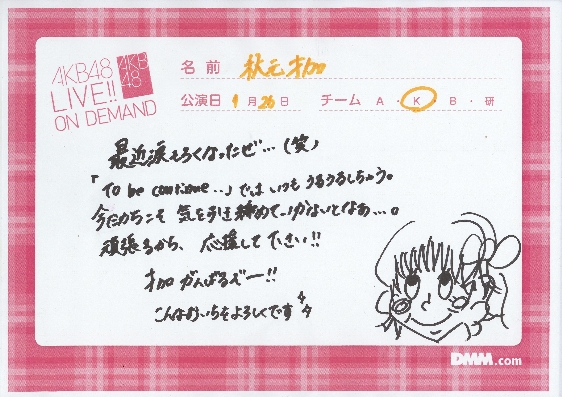 AKB48
LIVE!!
ON DEMAND
AKB
48
名前 秋元才加
公演日 9月26日 チーム A・K・B・研
最近涙もろくなったぜ…(笑)
「To be continue…」では いつも うるうるしちゃう。
今だからこそ 気を引き締めて いかないとなぁ…。
頑張るから、応援して下さい!!
才加 がんばるぞー!!
よろしくです
DMM.com